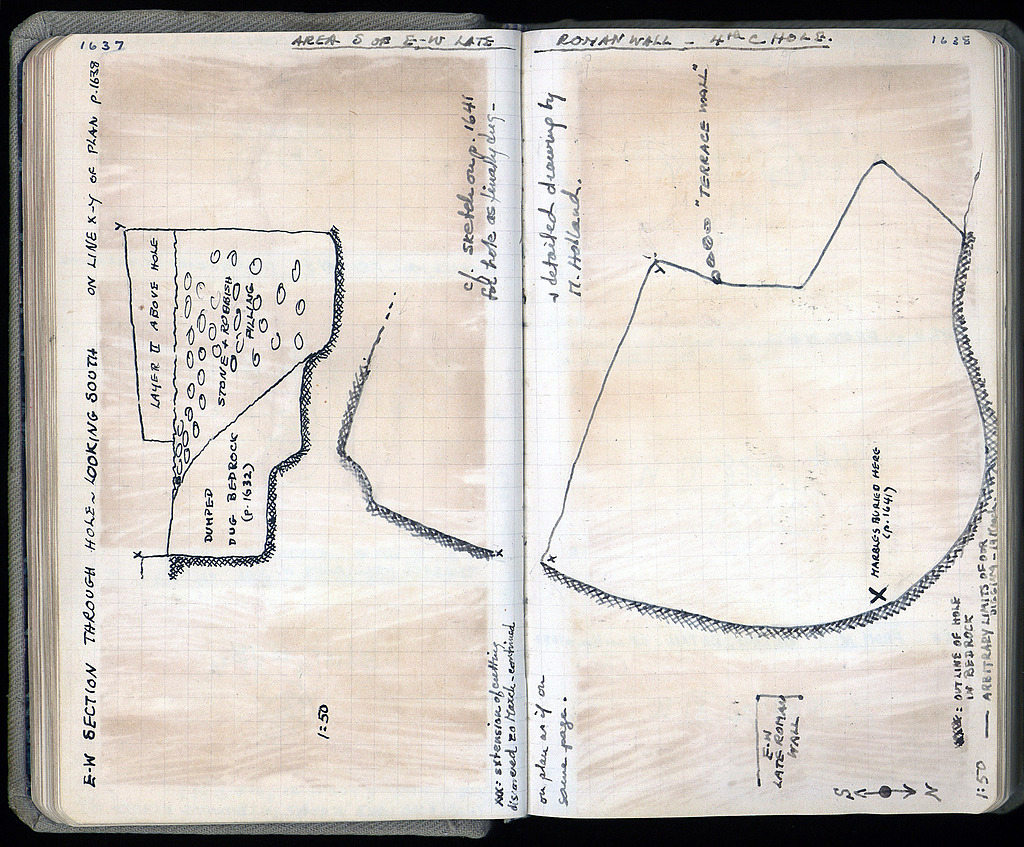 1637
AREA S OF E-W LATE
E-W SECTION THROUGH HOLE - LOOKING SOUTH ON LINE X-Y OF PLAN P.1638
Y
LAYER II ABOVE HOLE
STONE + RUBBISH
FILLING
DUMPED
DUG BEDROCK
(P.1632)
X
1:50
cf. sketch on p. 1641
for hole as finally dug -
X
XXX: extension of cutting
discovered 20 March - continued
1638
ROMAN WALL - 4th C HOLE.
+ detailed drawing by
M. Holland.
"TERRACE WALL"
Y
X
X MARBLES BURIED HERE
(p.1641)
on plan as if on
same page.
E-W
LATE ROMAN
WALL
S
N
XXX: OUTLINE OF HOLE
IN BEDROCK
— ARBITRARY LIMITS OF OUR
DIGGING - 19 March.
1:50